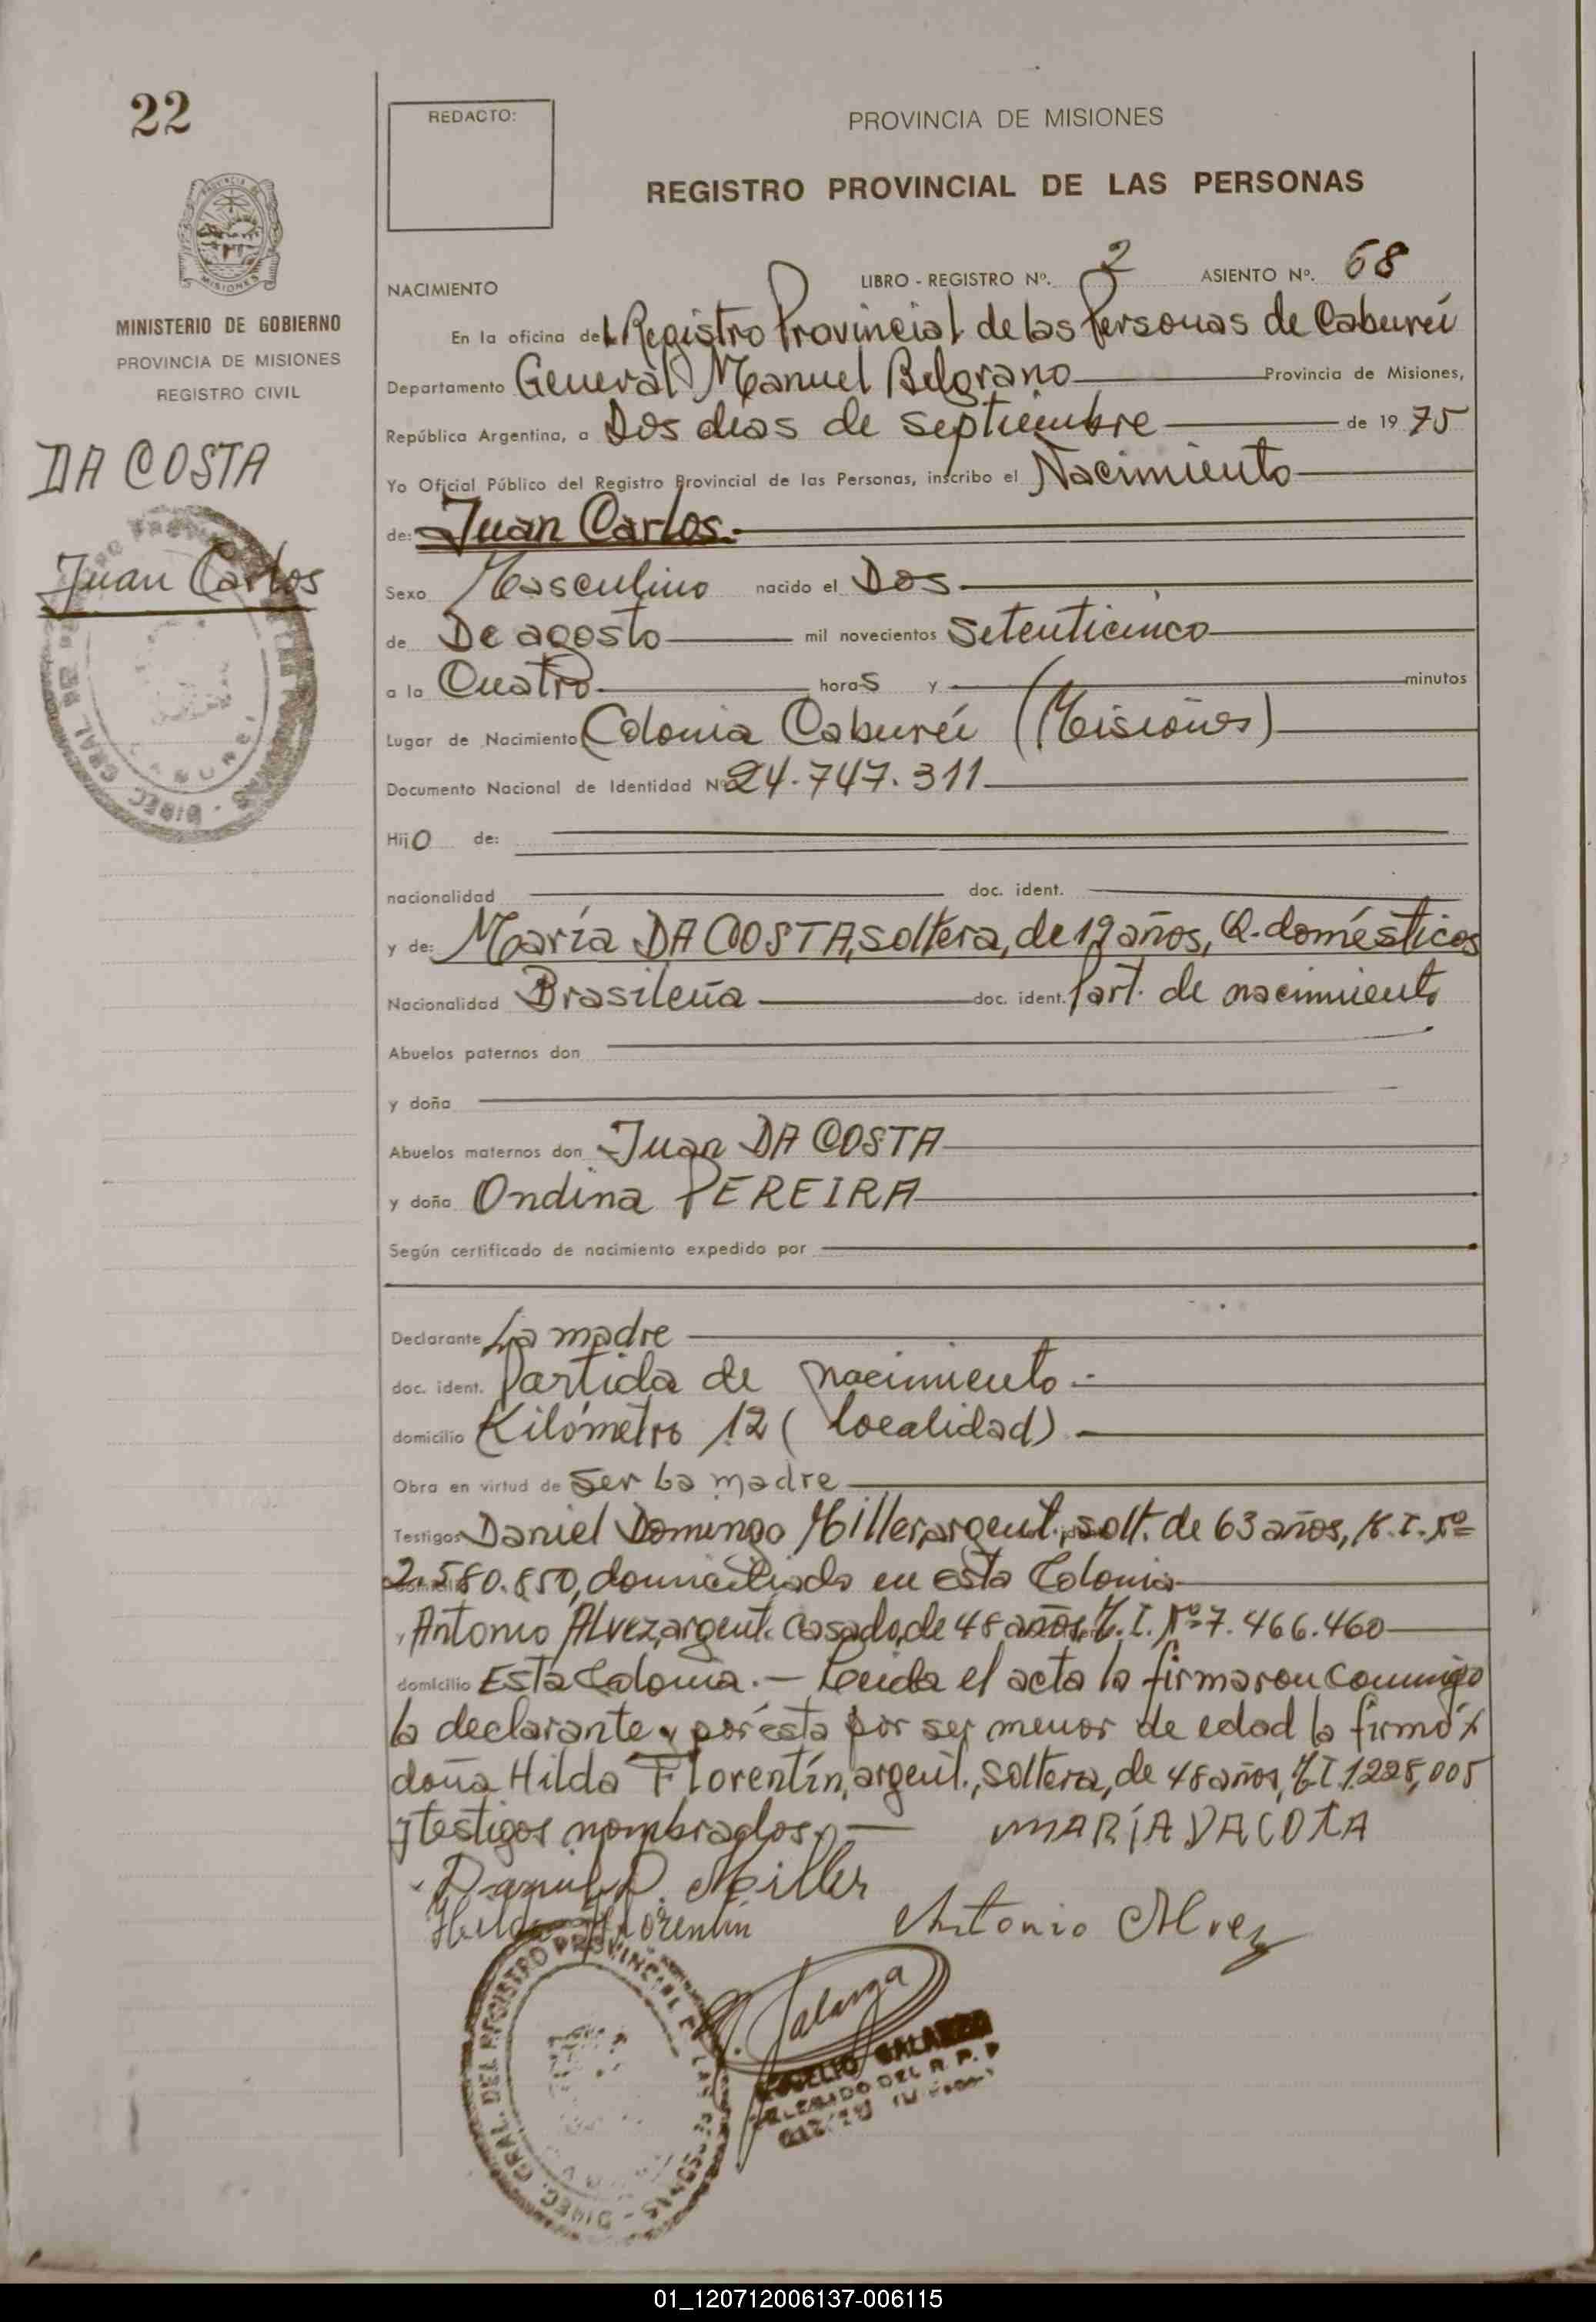 22
REDACTO:
PROVINCIA DE MISIONES
REGISTRO PROVINCIAL DE LAS PERSONAS
NACIMIENTO LIBRO - REGISTRO Nº. 2 ASIENTO Nº. 68
MINISTERIO DE GOBIERNO
PROVINCIA DE MISIONES
REGISTRO CIVIL
DA COSTA
Juan Carlos
En la oficina del Registro Provincial de las Personas de Caburéi
Departamento General Manuel Belgrano Provincia de Misiones,
República Argentina, a Dos días de septiembre de 19 75
Yo Oficial Público del Registro Provincial de las Personas, inscribo el Nacimiento
de: Juan Carlos.
Sexo Masculino nacido el Dos
de De agosto mil novecientos setenticinco
a la Cuatro horas y minutos
Lugar de Nacimiento Colonia Caburéi (Misiones)
Documento Nacional de Identidad Nº 24.747.311
Hijo de:
nacionalidad doc. ident.
y de: María DA COSTA, soltera, de 19 años, Q. domésticos
Nacionalidad Brasileña doc. ident. Part. de nacimiento
Abuelos paternos don
y doña
Abuelos maternos don Juan DA COSTA
y doña Ondina PEREIRA
Según certificado de nacimiento expedido por
Declarante La madre
doc. ident. Partida de nacimiento.-
domicilio Kilómetro 12 (localidad)
Obra en virtud de ser la madre
Testigos Daniel Domingo Miller, argent. solt. de 63 años, M.I. Nº
2.580.850, domiciliado en esta Colonia
Antonio Alvez, argent. casado, de 48 años, M.I. Nº 7.466.460
domicilio Esta Colonia.- Leída el acta la firmaron conmigo
la declarante y por ésta por ser menor de edad la firmó x
doña Hilda Florentín, argent., soltera, de 48 años, M.I. 1.225,005
y testigos nombrados.- MARÍA DACOTA
Daniel D. Miller
Hilda Florentin Antonio Alvez
DIREC. GRAL. DEL REGISTRO PROVINCIAL DE LAS PERSONAS
01_120712006137-006115